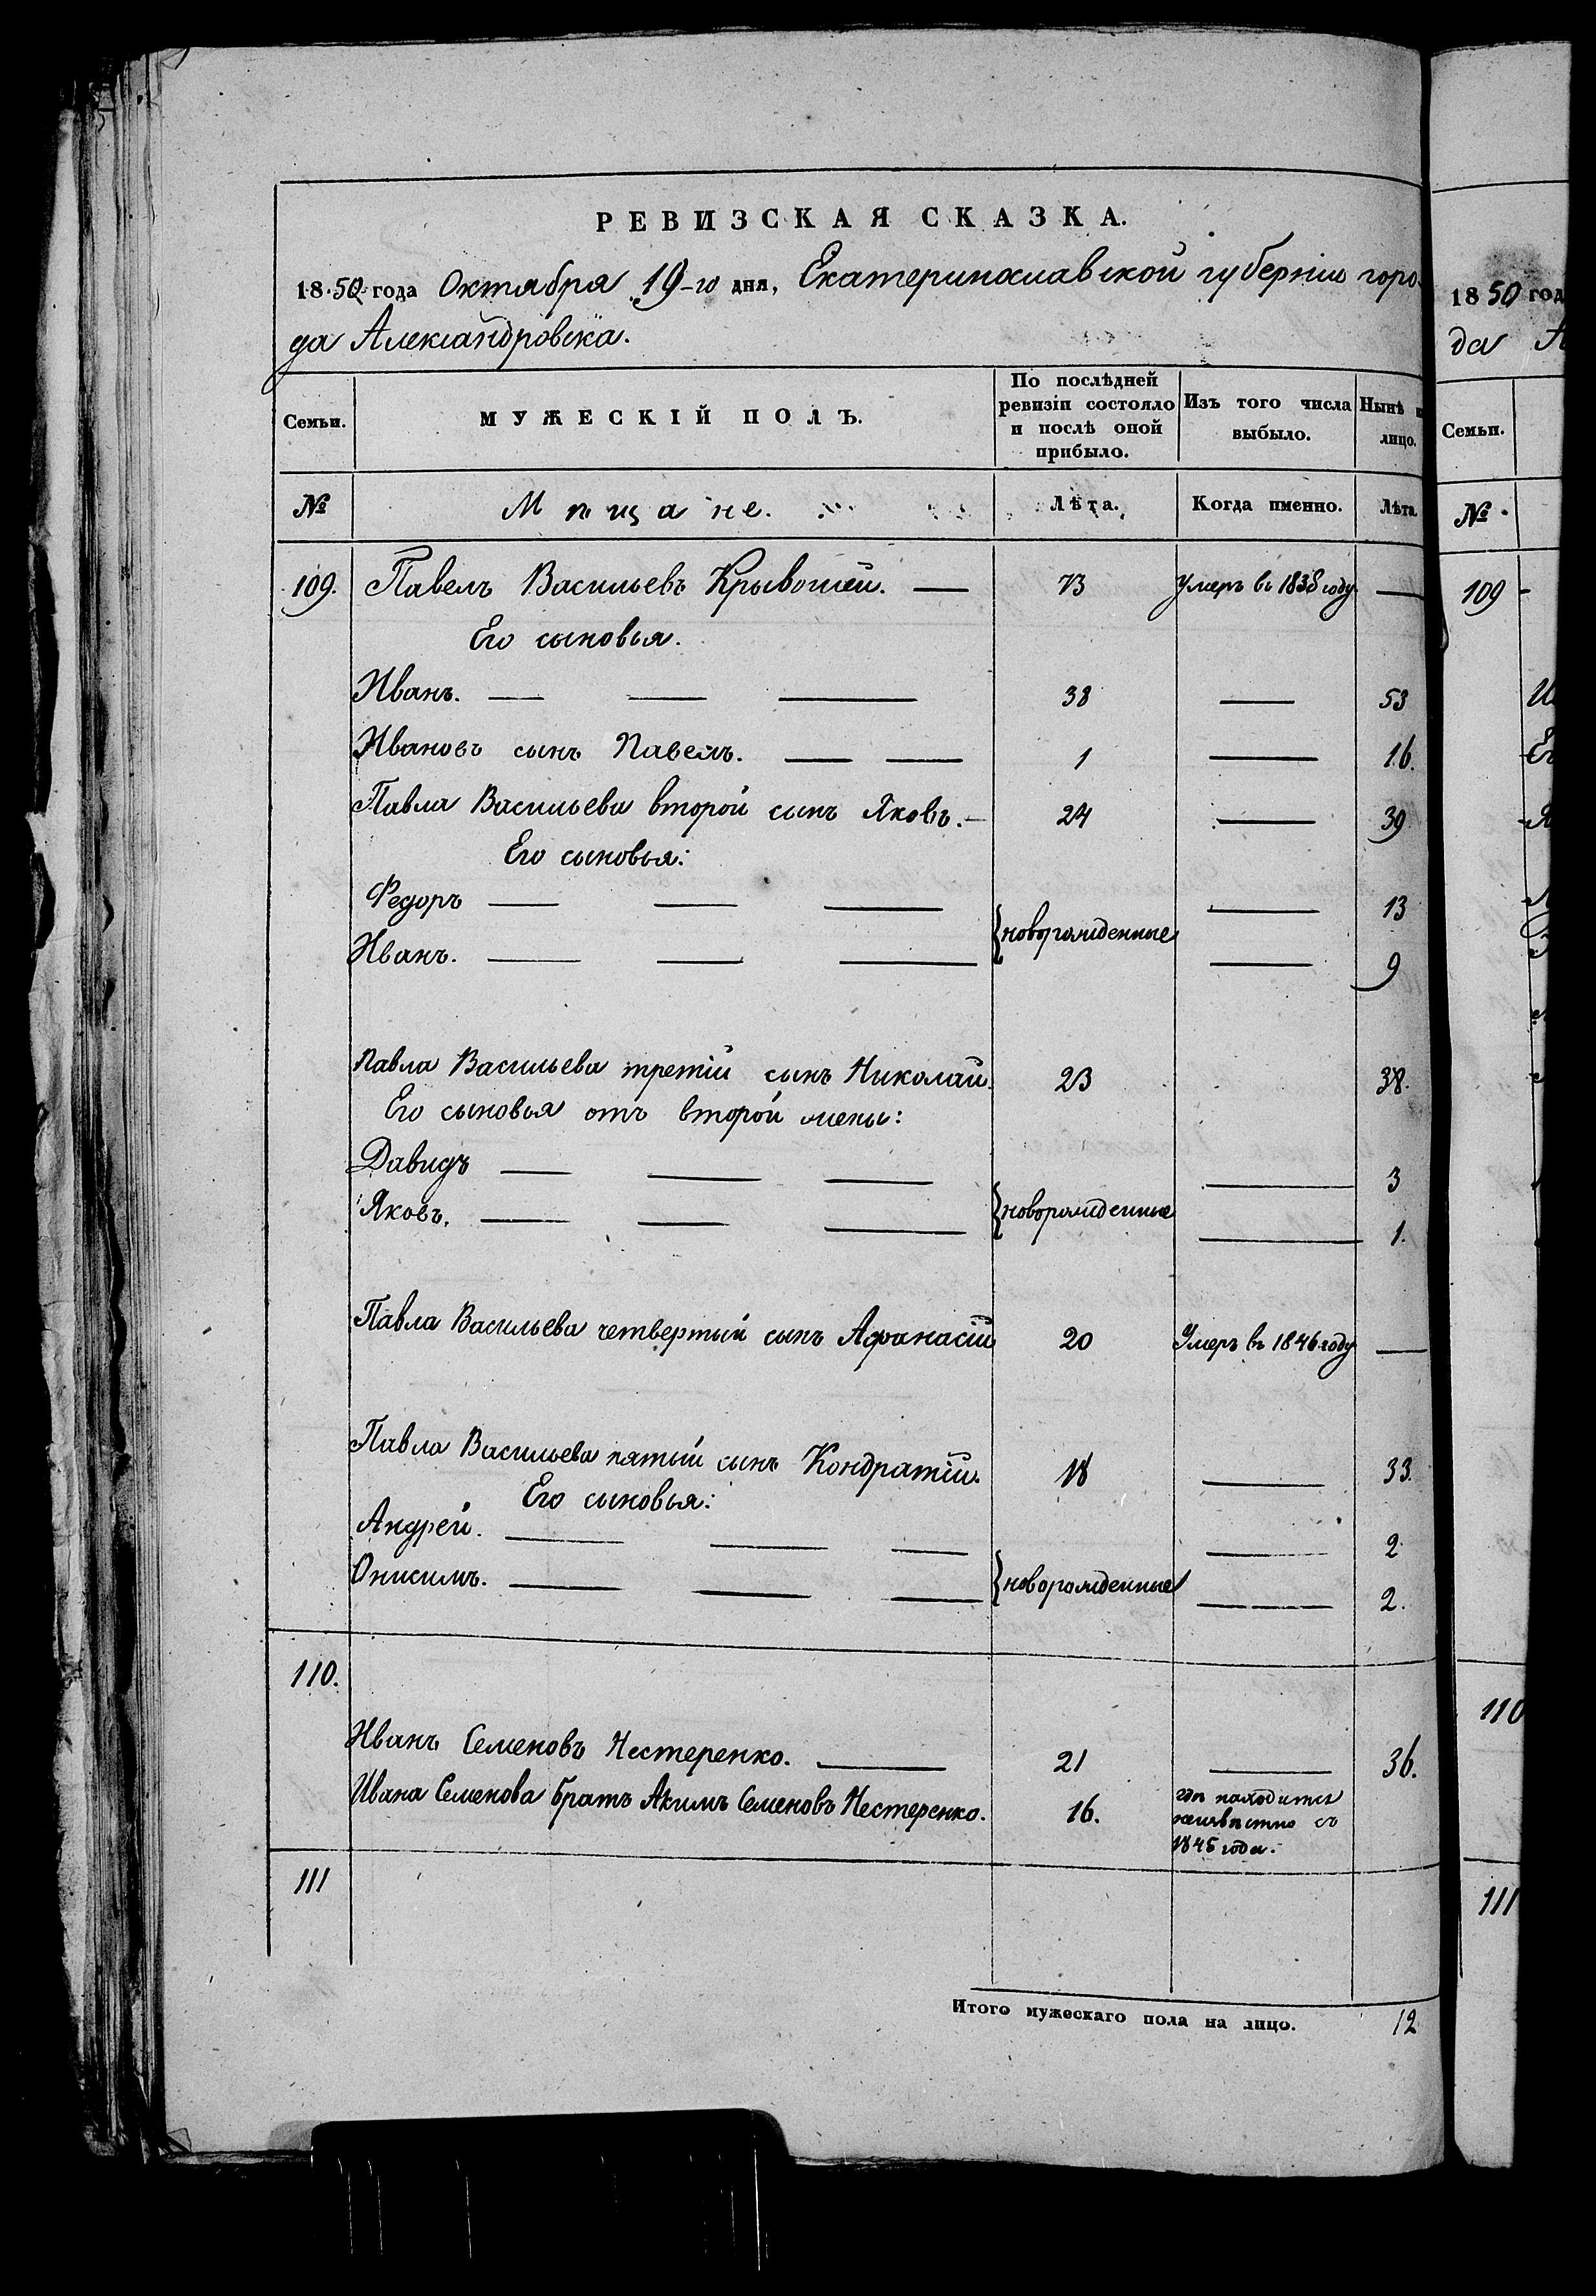 РЕВИЗСКАЯ СКАЗКА.
1850 года Октября 19-го дня, Екатеринославской губернiи горо-
да Александровска.
Семьи.
МУЖЕСКIЙ ПОЛЪ.
По послѣдней ревизiи состояло и послѣ оной прибыло.
Изъ того числа выбыло.
Нынѣ н лицо.
№
Мѣщане.
Лѣта.
Когда именно.
Лѣта.
109. Павелъ Васильевъ Крывошей. — 73 Умеръ въ 1838 году —
Его сыновья.
Иванъ. — — — 38 — 53
Ивановъ сынъ Павелъ. — — 1 — 16.
Павла Васильева второй сынъ Яковъ. — 24 — 39
Его сыновья:
Федоръ — — — — 13
{новорожденные
Иванъ. — — — — 9
Павла Васильева третiй сынъ Николай. 23 38.
Его сыновья отъ второй жены:
Давидъ — — — — 3
{новорожденные
Яковъ. — — — — 1.
Павла Васильева четвертый сынъ Афанасiй 20 Умеръ въ 1846 году —
Павла Васильева пятый сынъ Кондратiй. 18 — 33.
Его сыновья:
Андрей. — — — — 2.
{новорожденные
Онисимъ. — — — — 2.
110.
Иванъ Семеновъ Нестеренко. — 21 — 36.
Ивана Семенова братъ Акимъ Семеновъ Нестеренко. 16. гдѣ находится
неизвѣстно съ
1845 года.
111
Итого мужескаго пола на лицо. 12
1850 год
да А
Семьи.
№
109 -
110
111